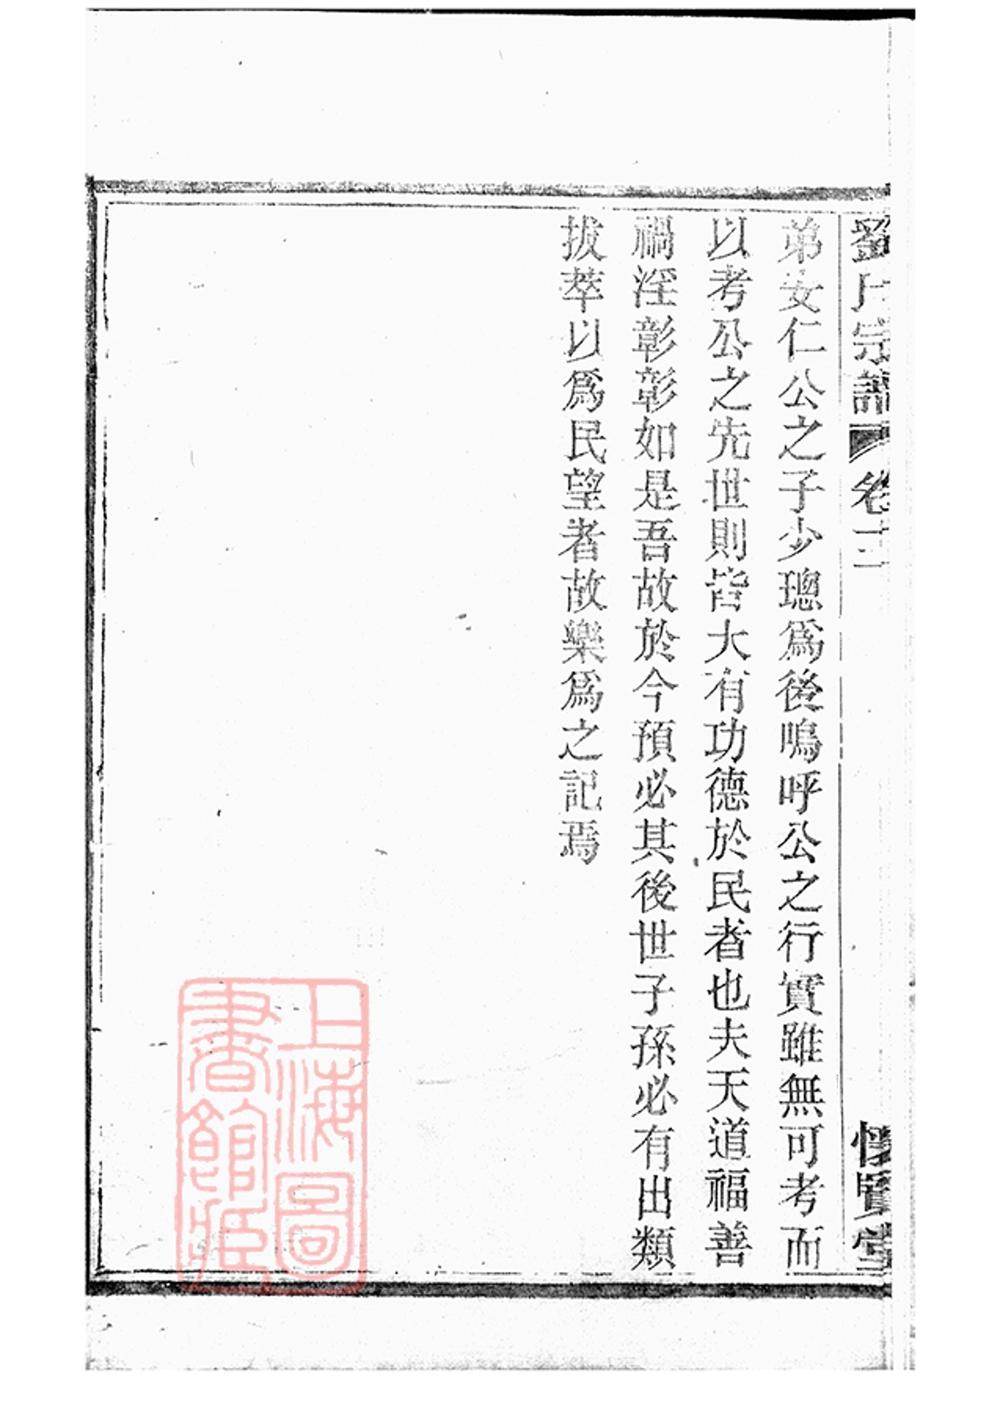 劉氏宗譜 卷十二 懷賢堂
弟安仁公之子少璁爲後嗚呼公之行實雖無可考而
以考公之先世則皆大有功德於民者也夫天道福善
禍淫彰彰如是吾故於今預必其後世子孫必有出類
拔萃以爲民望者故樂爲之記焉
上海圖
書館藏